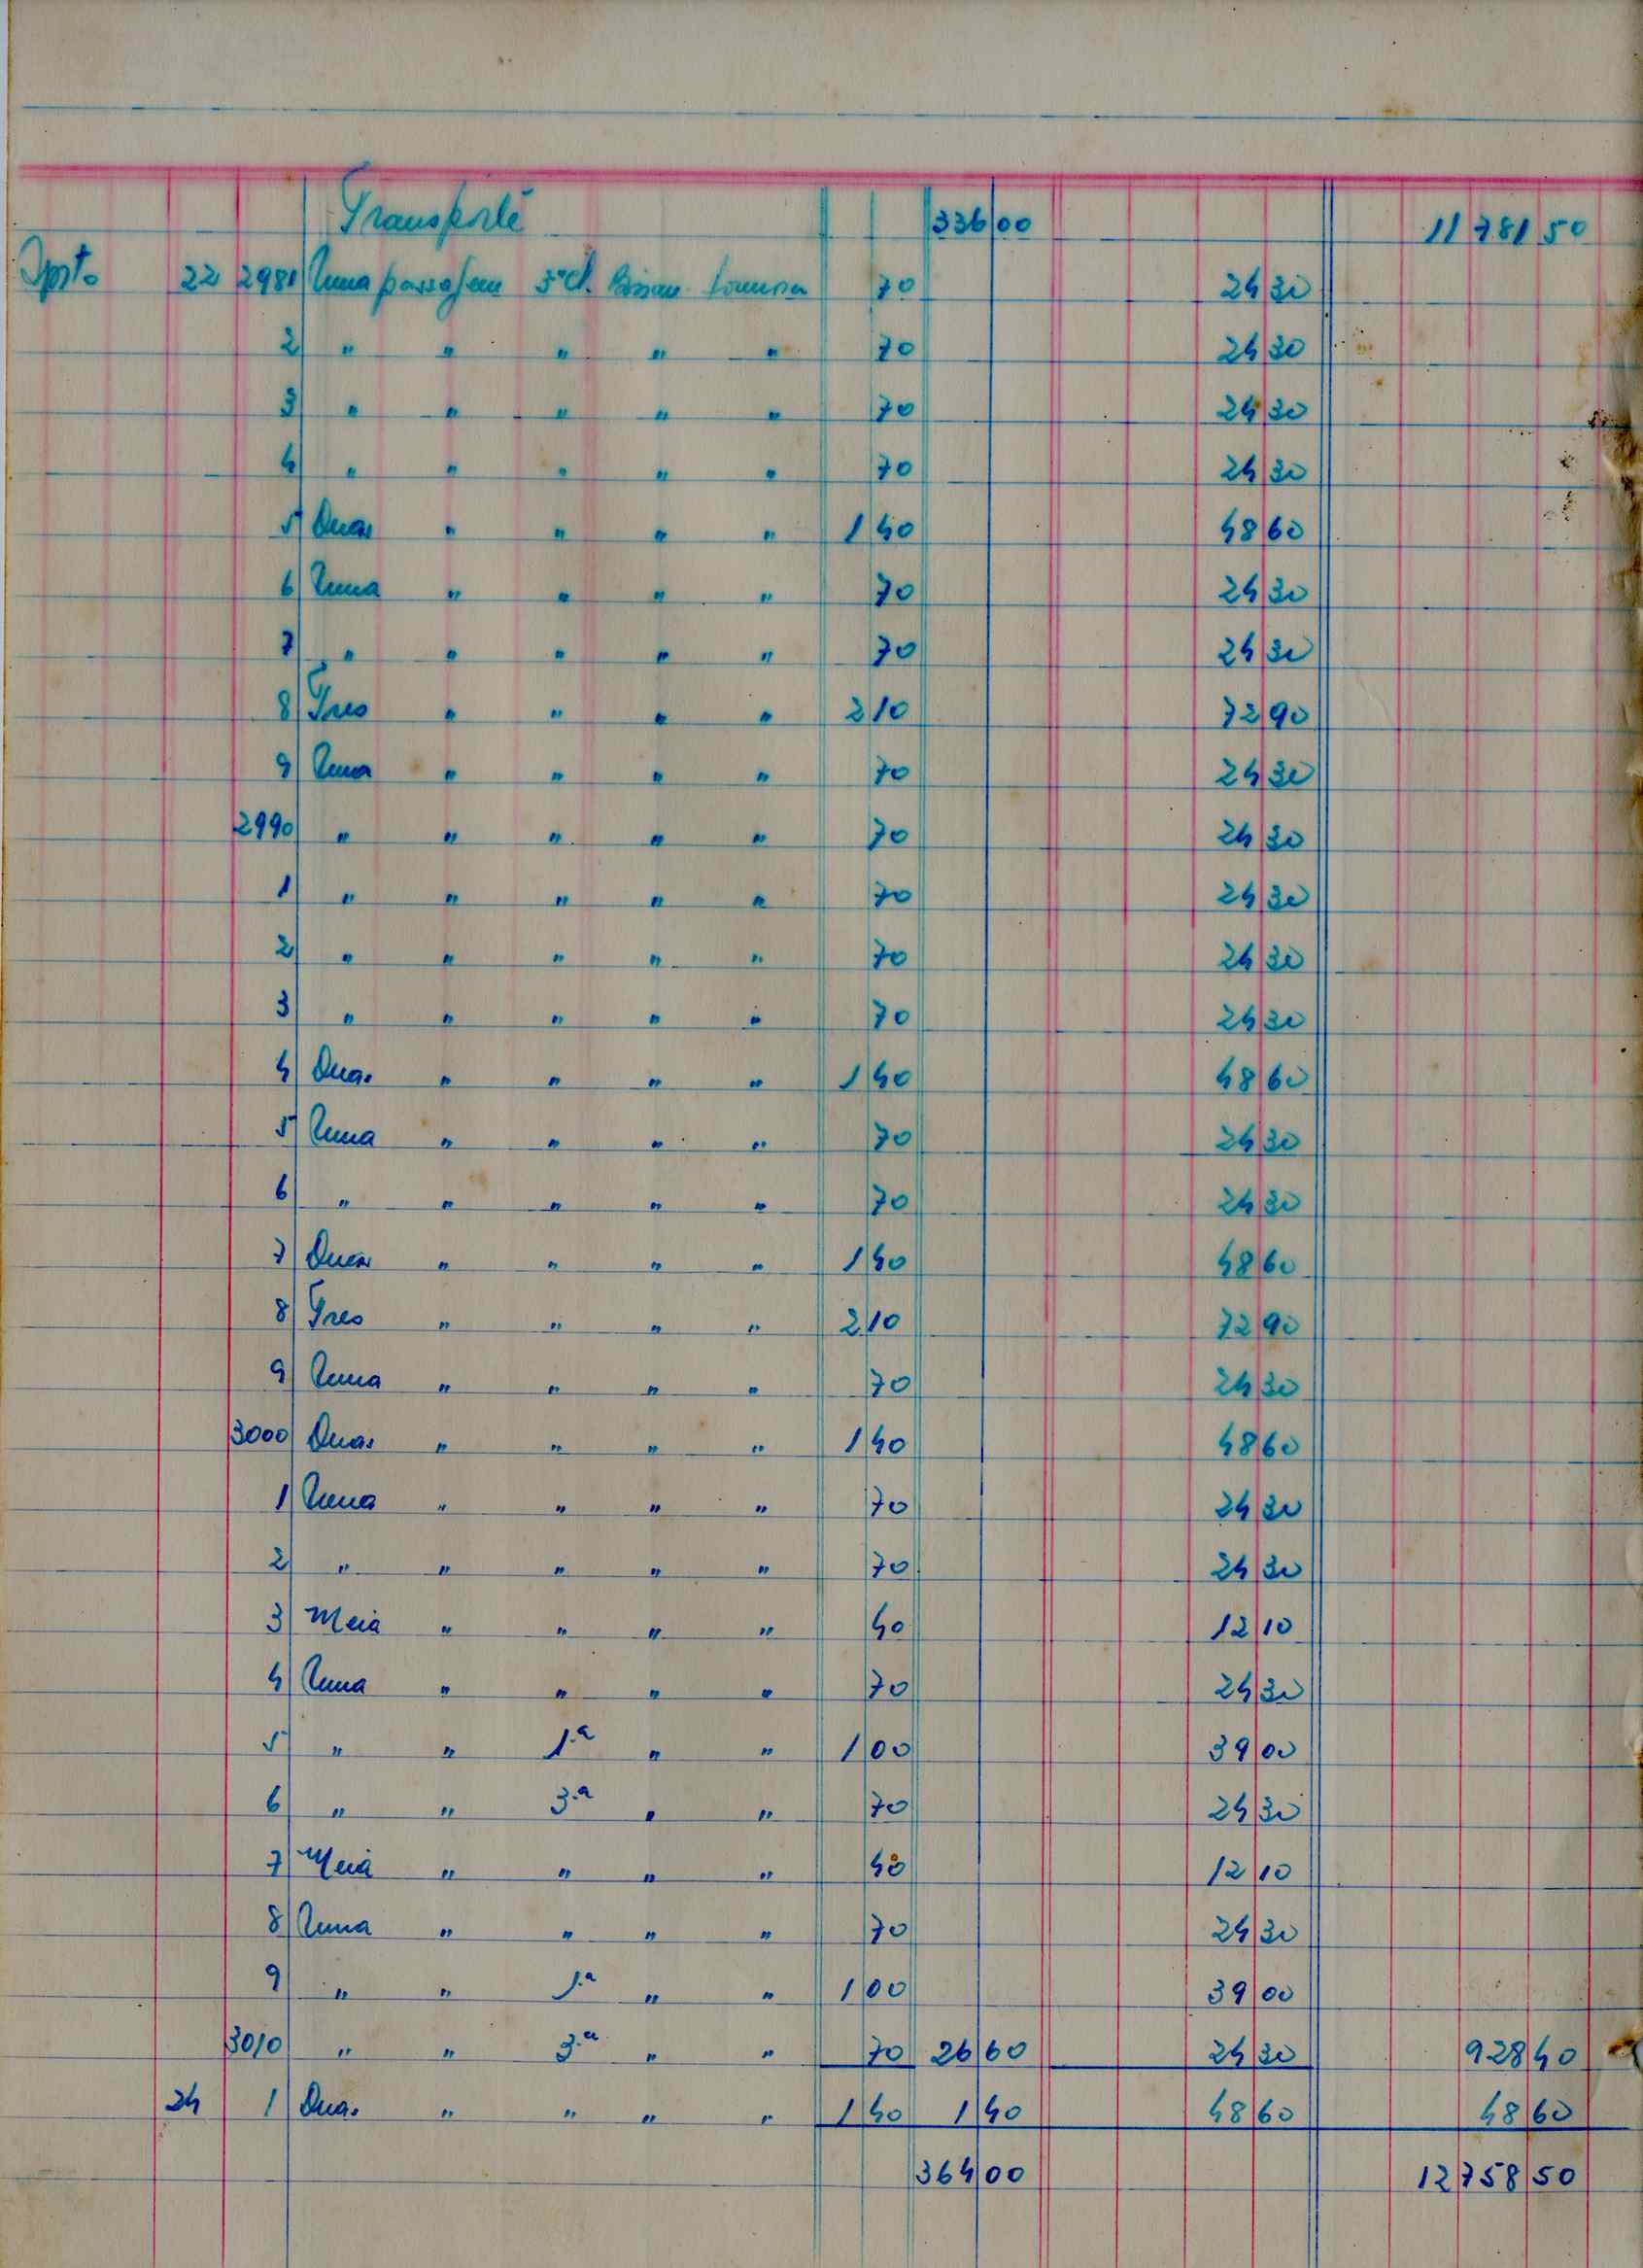 Transporte 336 00 11 781 50
22 2981 Uma passagem 3ª cl. Bissau 70 24 30
2 " " " " " 70 24 30
3 " " " " " 70 24 30
4 " " " " " 70 24 30
5 Duas " " " " 1 40 48 60
6 Uma " " " " 70 24 30
7 " " " " " 70 24 30
8 Tres " " " " 2 10 72 90
9 Uma " " " " 70 24 30
2990 " " " " " 70 24 30
1 " " " " " 70 24 30
2 " " " " " 70 24 30
3 " " " " " 70 24 30
4 Duas " " " " 1 40 48 60
5 Uma " " " " 70 24 30
6 " " " " " 70 24 30
7 Duas " " " " 1 40 48 60
8 Tres " " " " 2 10 72 90
9 Uma " " " " 70 24 30
3000 Duas " " " " 1 40 48 60
1 Uma " " " " 70 24 30
2 " " " " " 70 24 30
3 Meia " " " " 40 12 10
4 Uma " " " " 70 24 30
5 " " 1.ª " " 1 00 39 00
6 " " 3.ª " " 70 24 30
7 Meia " " " " 40 12 10
8 Uma " " " " 70 24 30
9 " " 1.ª " " 1 00 39 00
3010 " " 3.ª " " 70 26 60 24 30 928 40
24 1 Duas " " " " 1 40 1 40 48 60 48 60
364 00 12 758 50